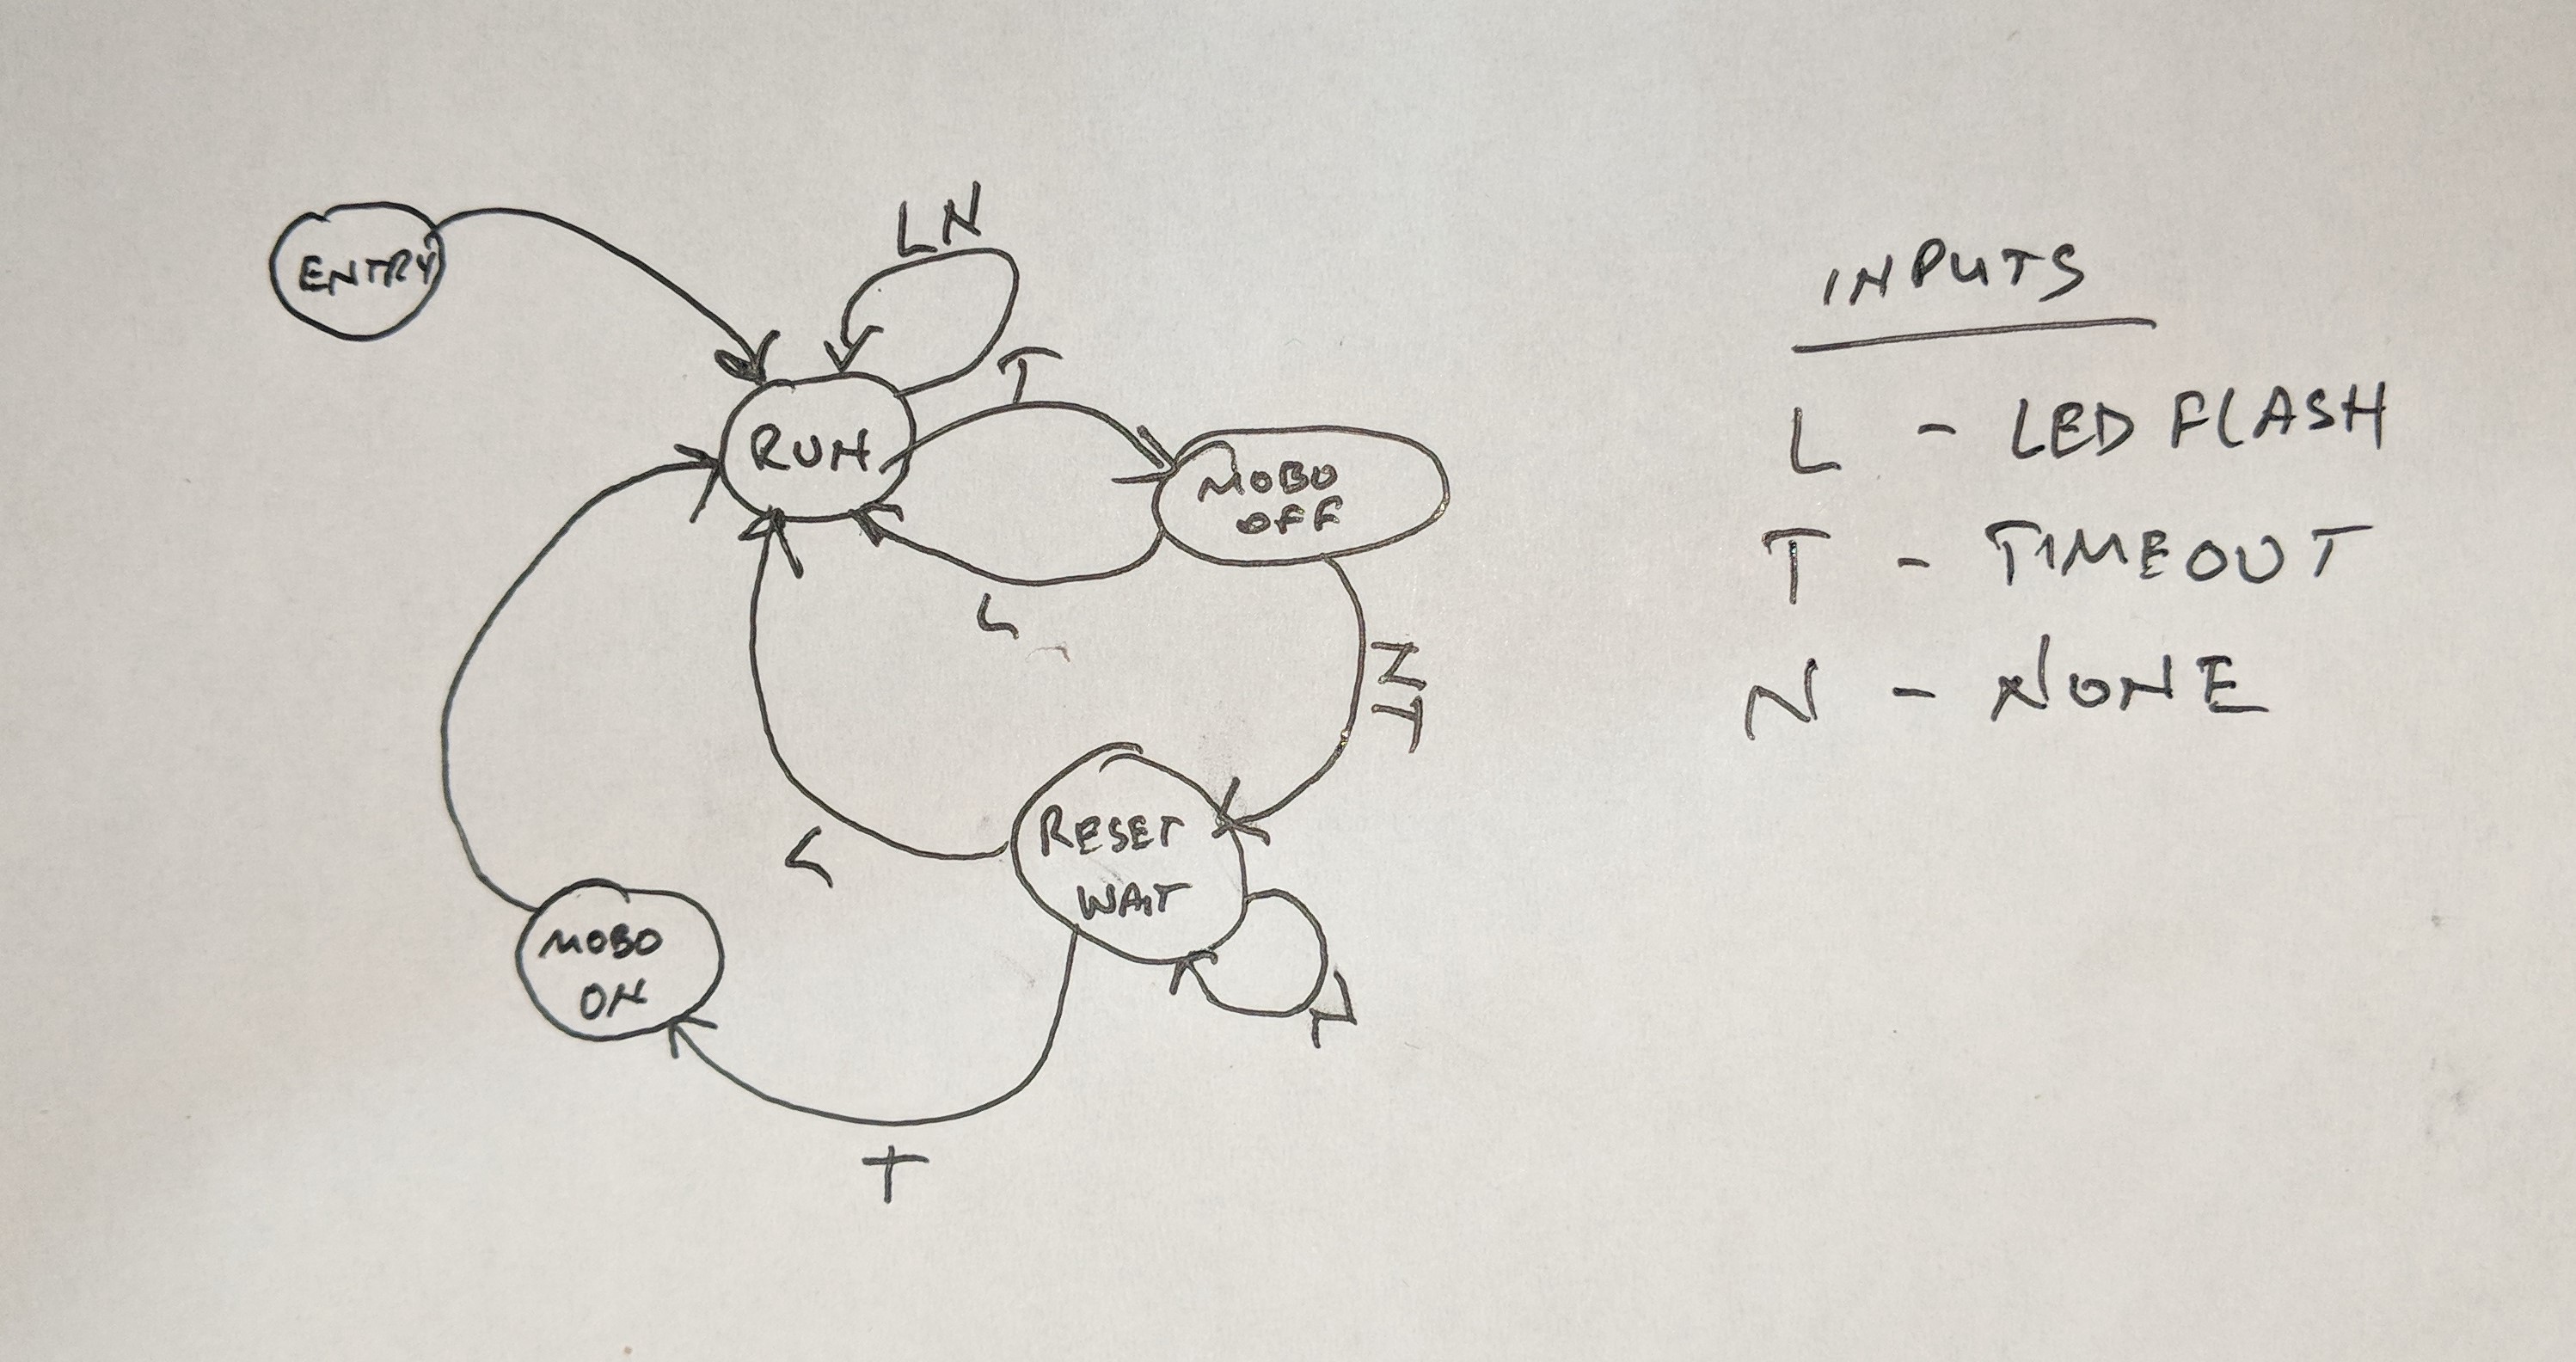 ENTRY
LN
RUN
T
MOBO
OFF
L
NT
RESET
WAIT
L
N
MOBO
ON
T
INPUTS
L - LED FLASH
T - TIMEOUT
N - NONE